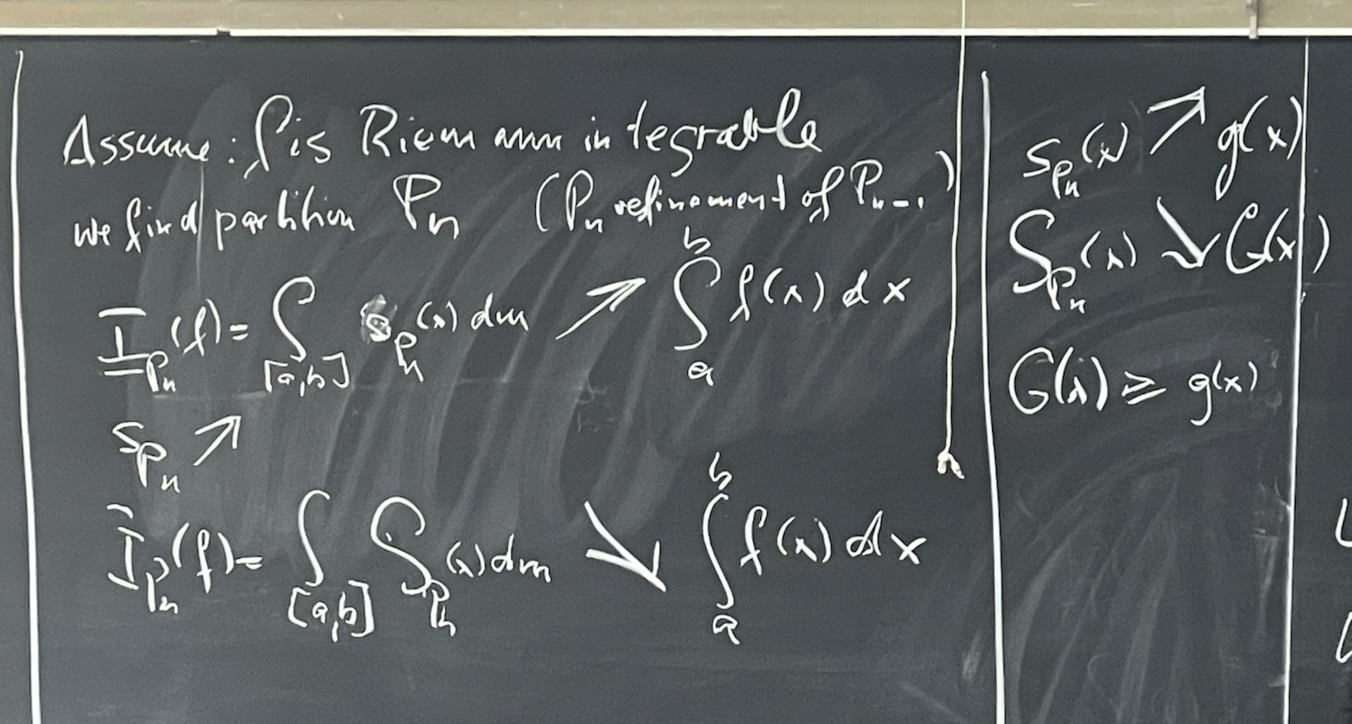 Assume: f is Riemann integrable
we find partition Pₙ (Pₙ refinement of Pₙ₋₁)
I̲_Pₙ(f) = ∫_[a,b] s_Pₙ(x) dm ↗ ∫_a^b f(x) dx
s_Pₙ ↗
Ī_Pₙ(f) = ∫_[a,b] S_Pₙ(x) dm ↘ ∫_a^b f(x) dx
s_Pₙ(x) ↗ g(x)
S_Pₙ(x) ↘ G(x)
G(x) ≥ g(x)